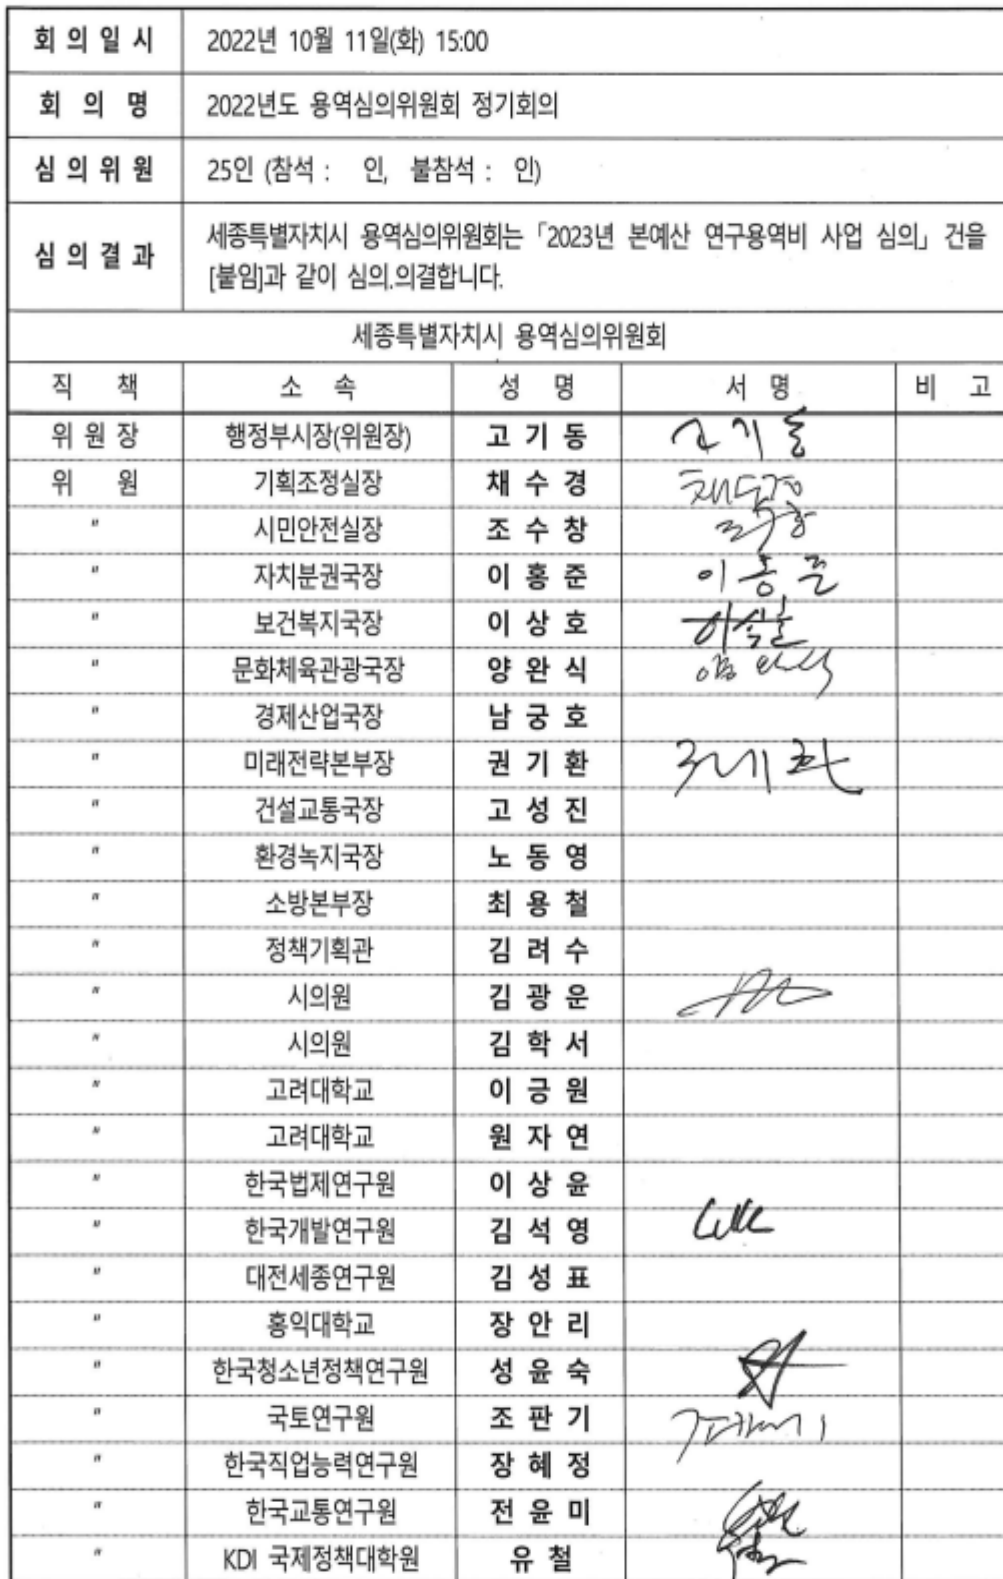 회 의 일 시 2022년 10월 11일(화) 15:00
회 의 명 2022년도 용역심의위원회 정기회의
심 의 위 원 25인 (참석 : 인, 불참석 : 인)
심 의 결 과 세종특별자치시 용역심의위원회는 「2023년 본예산 연구용역비 사업 심의」 건을
[붙임]과 같이 심의.의결합니다.
세종특별자치시 용역심의위원회
직 책 소 속 성 명 서 명 비 고
위 원 장 행정부시장(위원장) 고 기 동 고 기 동
위 원 기획조정실장 채 수 경 채수경
" 시민안전실장 조 수 창 조수창
" 자치분권국장 이 홍 준 이 홍 준
" 보건복지국장 이 상 호 이상호
" 문화체육관광국장 양 완 식 양 완식
" 경제산업국장 남 궁 호
" 미래전략본부장 권 기 환 권기환
" 건설교통국장 고 성 진
" 환경녹지국장 노 동 영
" 소방본부장 최 용 철
" 정책기획관 김 려 수
" 시의원 김 광 운
" 시의원 김 학 서
" 고려대학교 이 긍 원
" 고려대학교 원 자 연
" 한국법제연구원 이 상 윤
" 한국개발연구원 김 석 영
" 대전세종연구원 김 성 표
" 홍익대학교 장 안 리
" 한국청소년정책연구원 성 윤 숙
" 국토연구원 조 판 기 조판기
" 한국직업능력연구원 장 혜 정
" 한국교통연구원 전 윤 미
" KDI 국제정책대학원 유 철